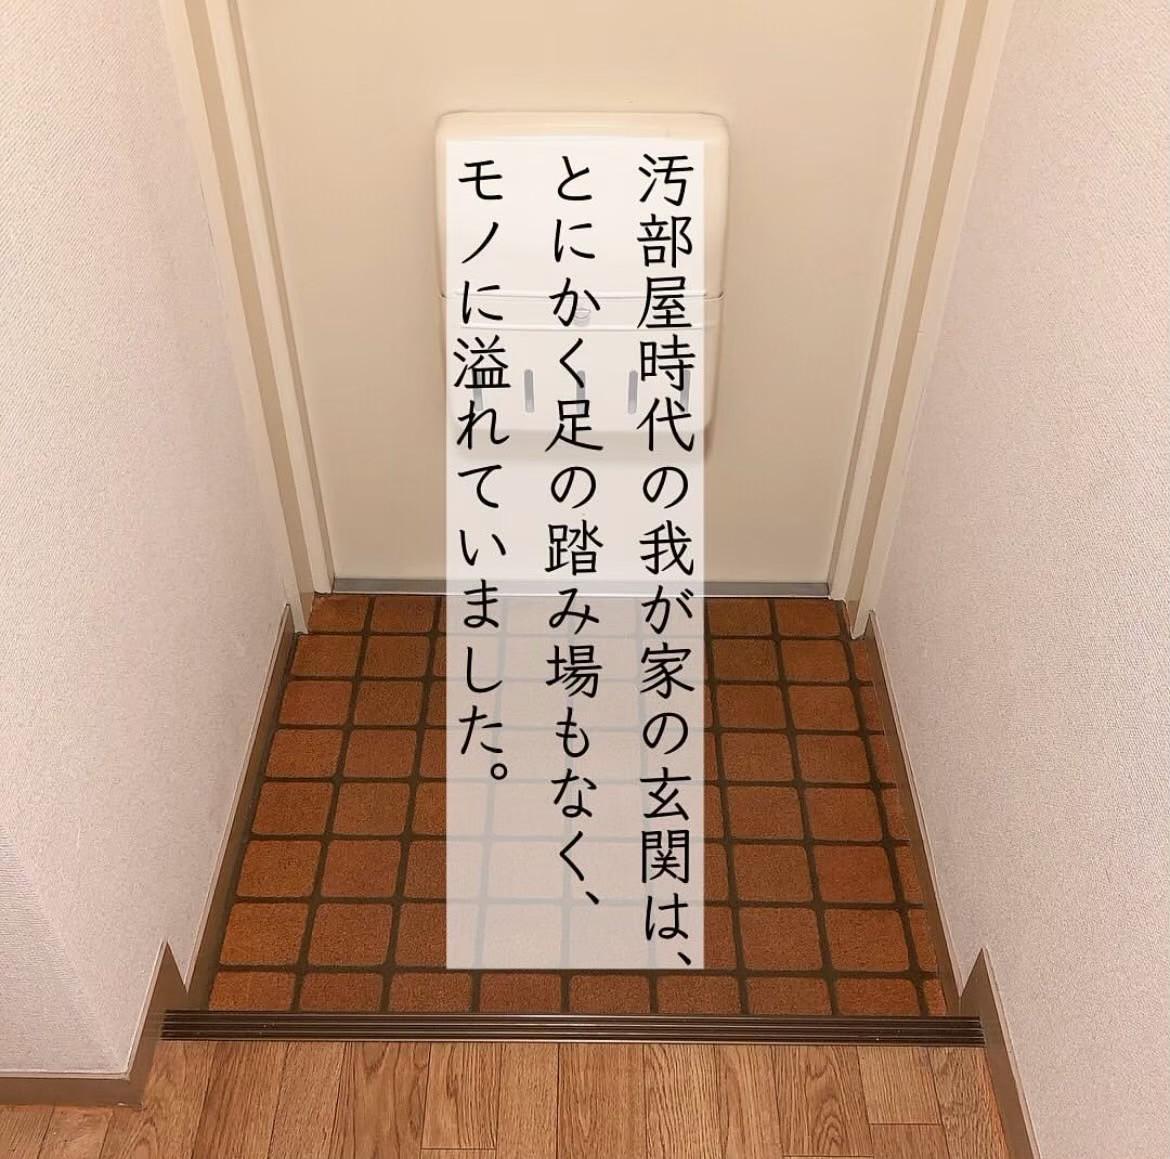 汚部屋時代の我が家の玄関は、
とにかく足の踏み場もなく、
モノに溢れていました。